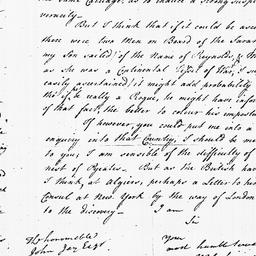 the same Carriage, as to induce a strong Suspi
veracity.
But I think that if it could be asce
there were two Men on Board of the Sara
my Son sailed of the Name of Reynolds, &
as she was a Continental Vessel of War, I su
easily ascertained, it might add probability
tho' if he really a Rogue, he might have infor
of that fact, the better to colour his impostu
If however you could put me into a
enquiry into that Country, I should be mu
to you; I am sensible of the difficulty of
nest of Pyrates. But as the British hav
I think, at Algiers, perhaps a Letter to his
Consul at New York by the way of London
to the discovery— I am
Sir
your
most humble
The honourable
John Jay Esqr.